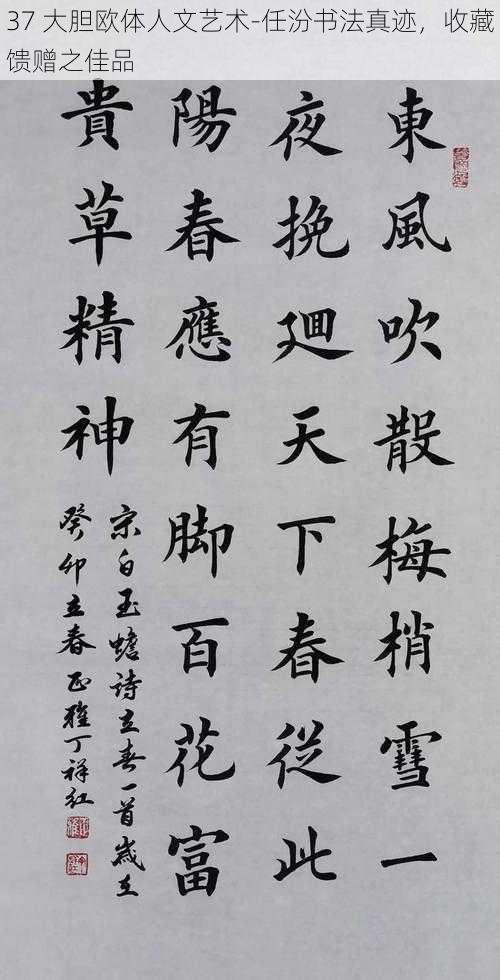 37 大胆欧体人文艺术-任汾书法真迹，收藏
馈赠之佳品
東風吹散梅梢雪一
夜挽迴天下春從此
陽春應有脚百花富
貴草精神
宋白玉蟾詩立春一首歲在
癸卯立春 正雅丁祥红